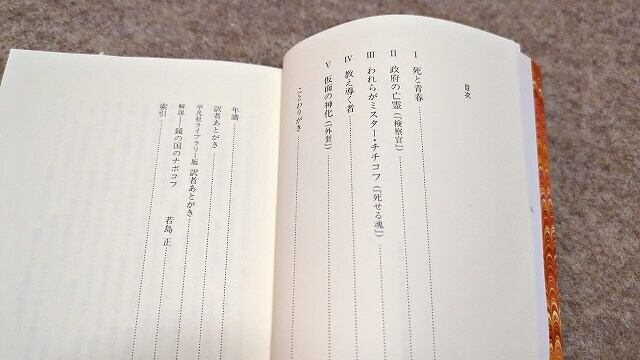 目次
Ⅰ 死と青春
Ⅱ 政府の亡霊(『検察官』)
Ⅲ われらがミスター・チチコフ(『死せる魂』)
Ⅳ 教え導く者
Ⅴ 仮面の神化(『外套』)
ことわりがき
年譜
訳者あとがき
平凡社ライブラリー版 訳者あとがき
解説——鏡の国のナボコフ 若島 正
索引